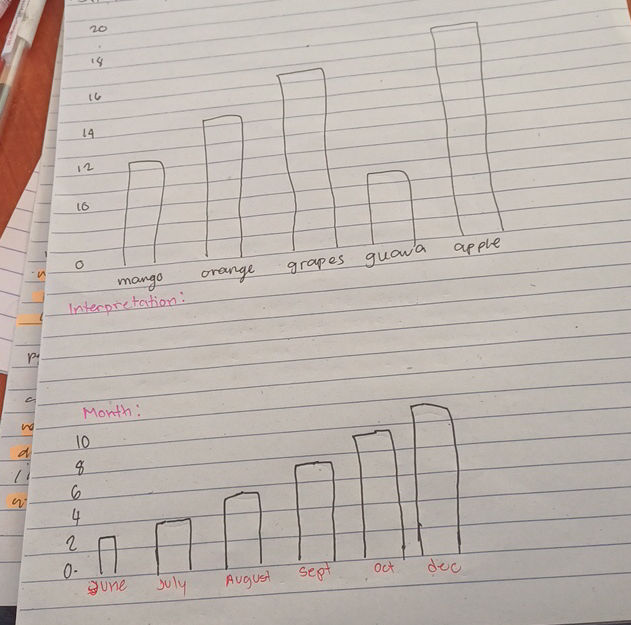 20
18
16
14
12
10
0
mango orange grapes guava apple
Interpretation:
Month:
10
8
6
4
2
0.
June July August Sept Oct dec